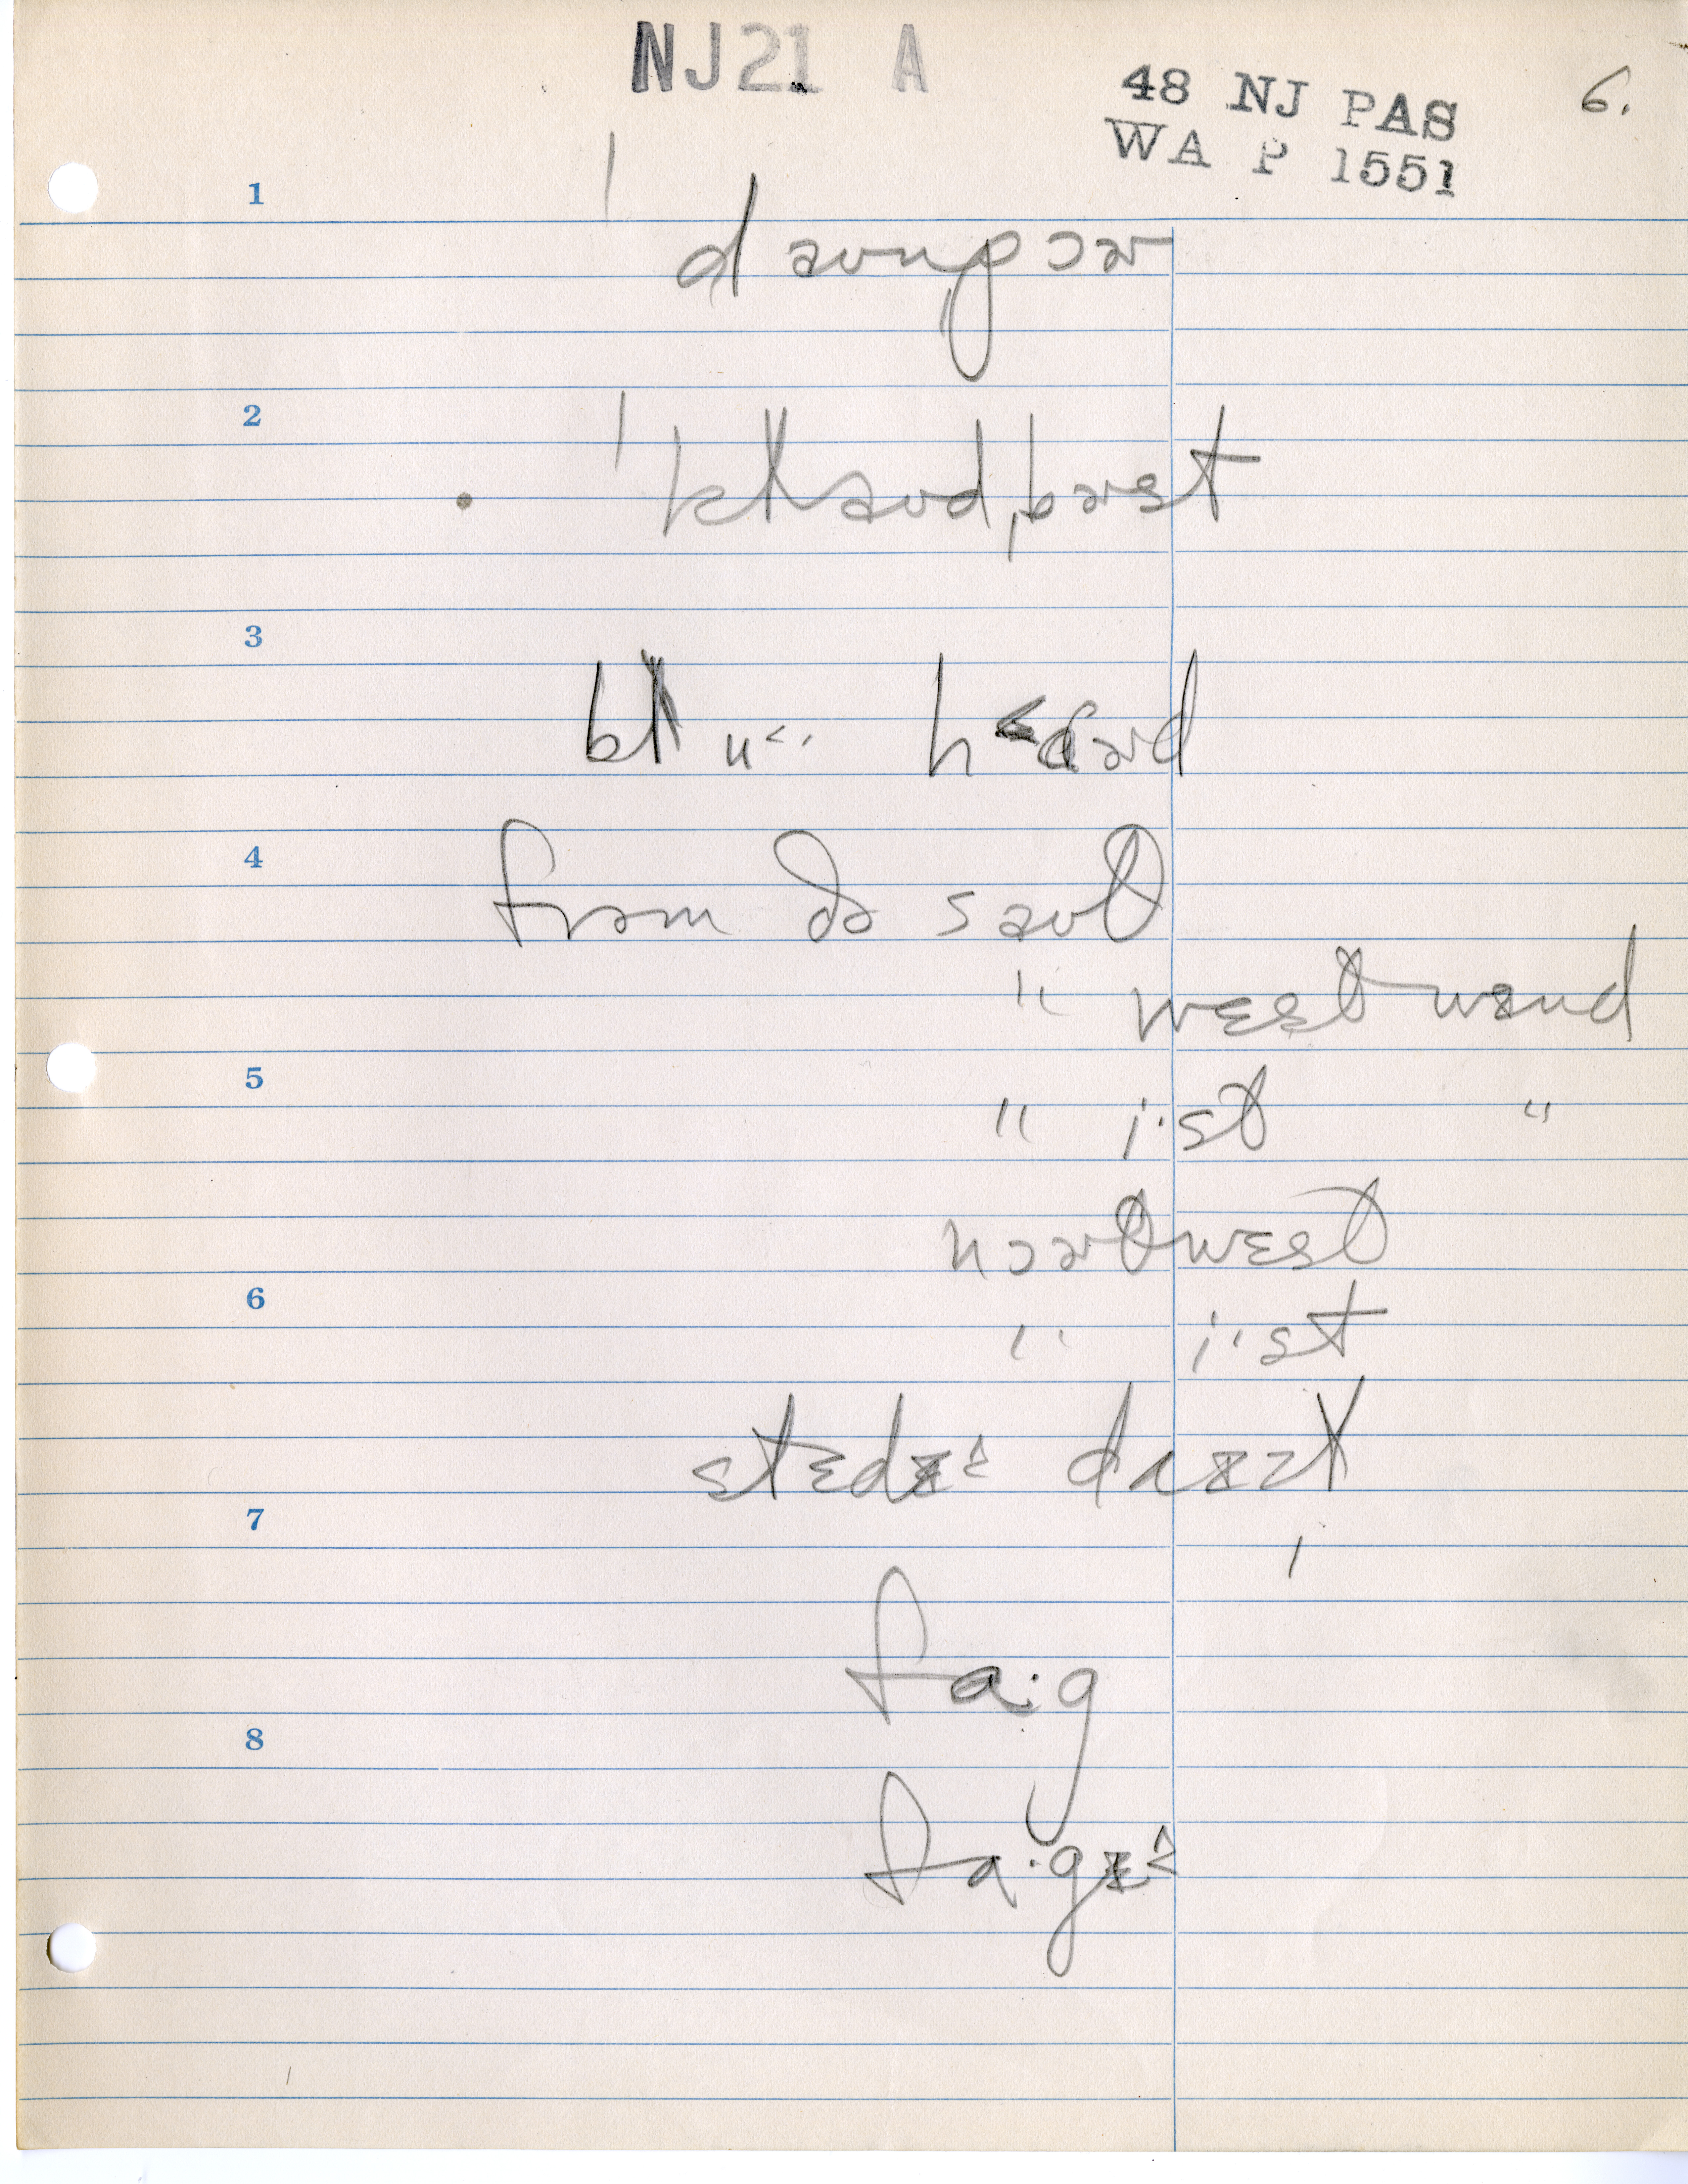 NJ21 A
48 NJ PAS
WA P 1551
6.
1
ˈdaʊnpɔɚ
2
ˈklaʊdˌbɚst
3
4
frəm ðə saʊθ
" wɛst wɪnd
5
" i·st "
nɔɚθwɛst
6
" i·st
stɛdɪ^ dɹɪzl
7
fɑ·g
8
fɑ·gɪ^